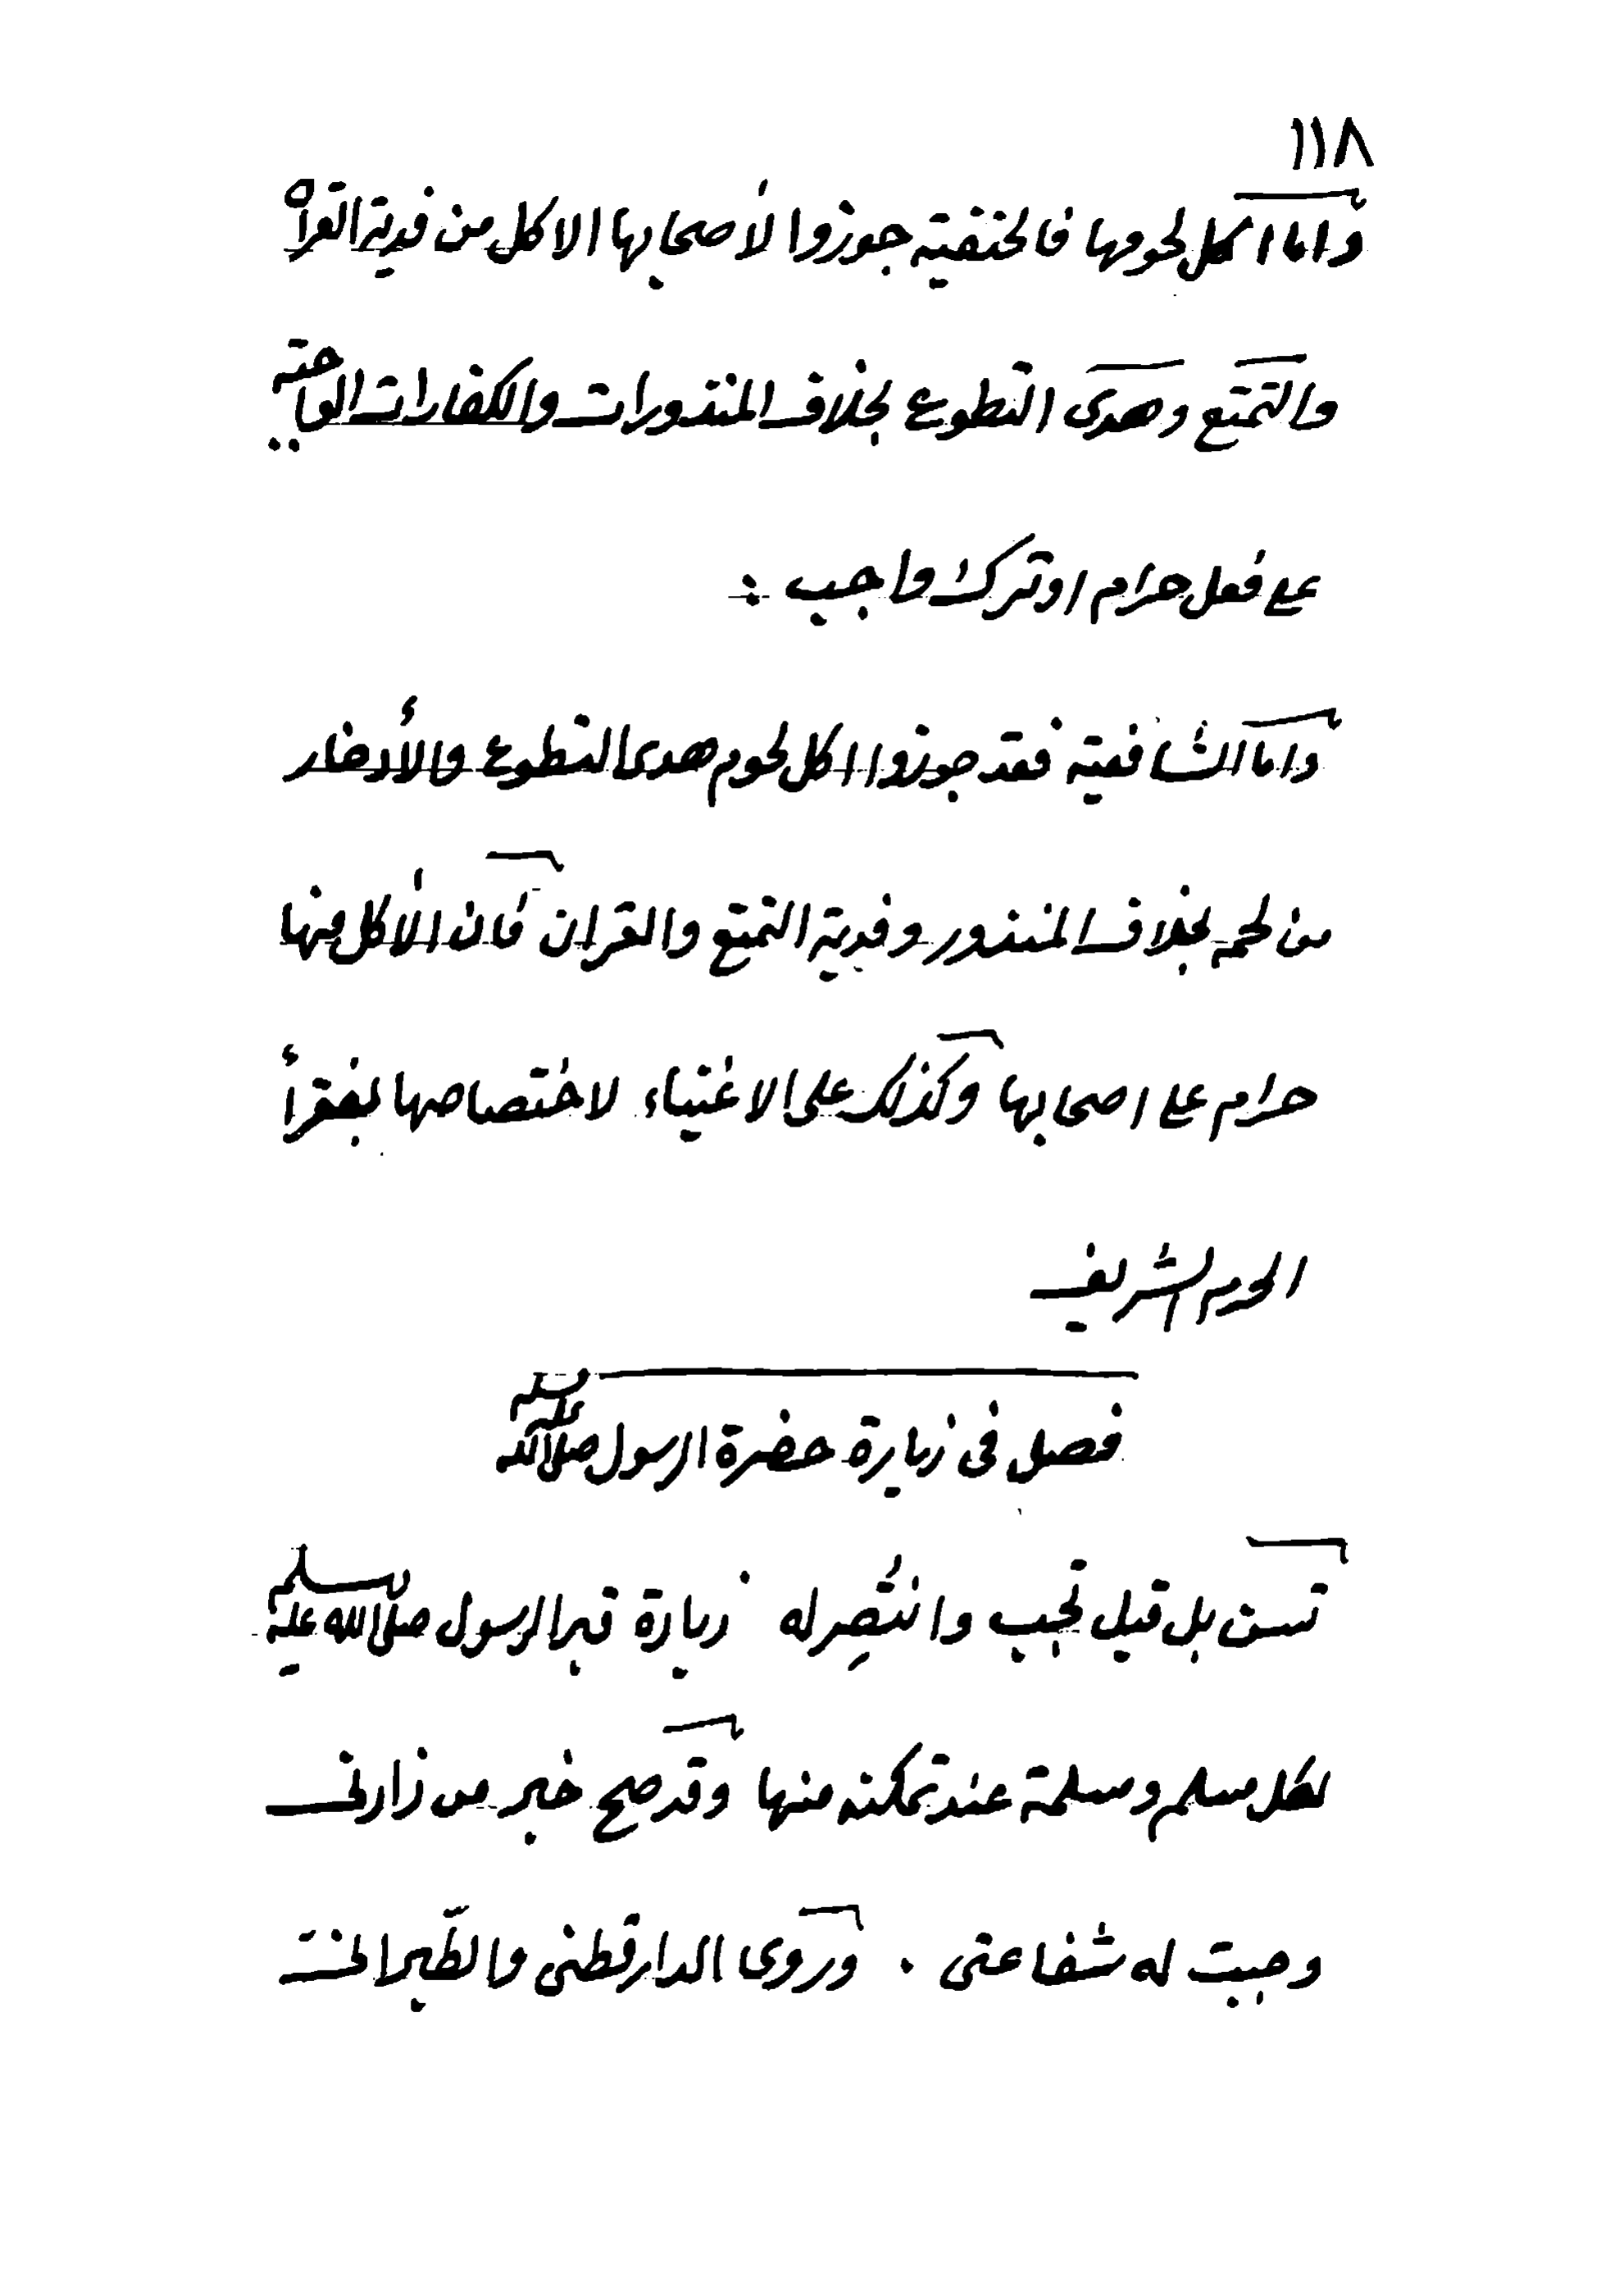 ١١٨
واما اكل لحومها فالحنفية جوزوا لأصحابها الاكل من فدية القران
والتمتع وهدى التطوع بخلاف المنذورات والكفارات الواجبة
على فعل حرام او ترك واجب :
واما الشافعية فقد جوزوا اكل لحوم هدى التطوع والأدخار
من لحمه بخلاف المنذور وفدية التمتع والقران فان الأكل منها
حرام على اصحابها وكذلك على الاغنياء لاختصاصها بفقرأ
الحرم الشريف
فصل فى زيارة حضرة الرسول صلى الله عليه وسلم
تسن بل قيل تجب وانتُصِر له زيارة قبر الرسول صلى الله عليه وسلم
لكل مسلم ومسلمة عند تمكنه منها وقد صح خبر من زارنى
وجبت له شفاعتى . وروى الدارقطنى والطّبرانى